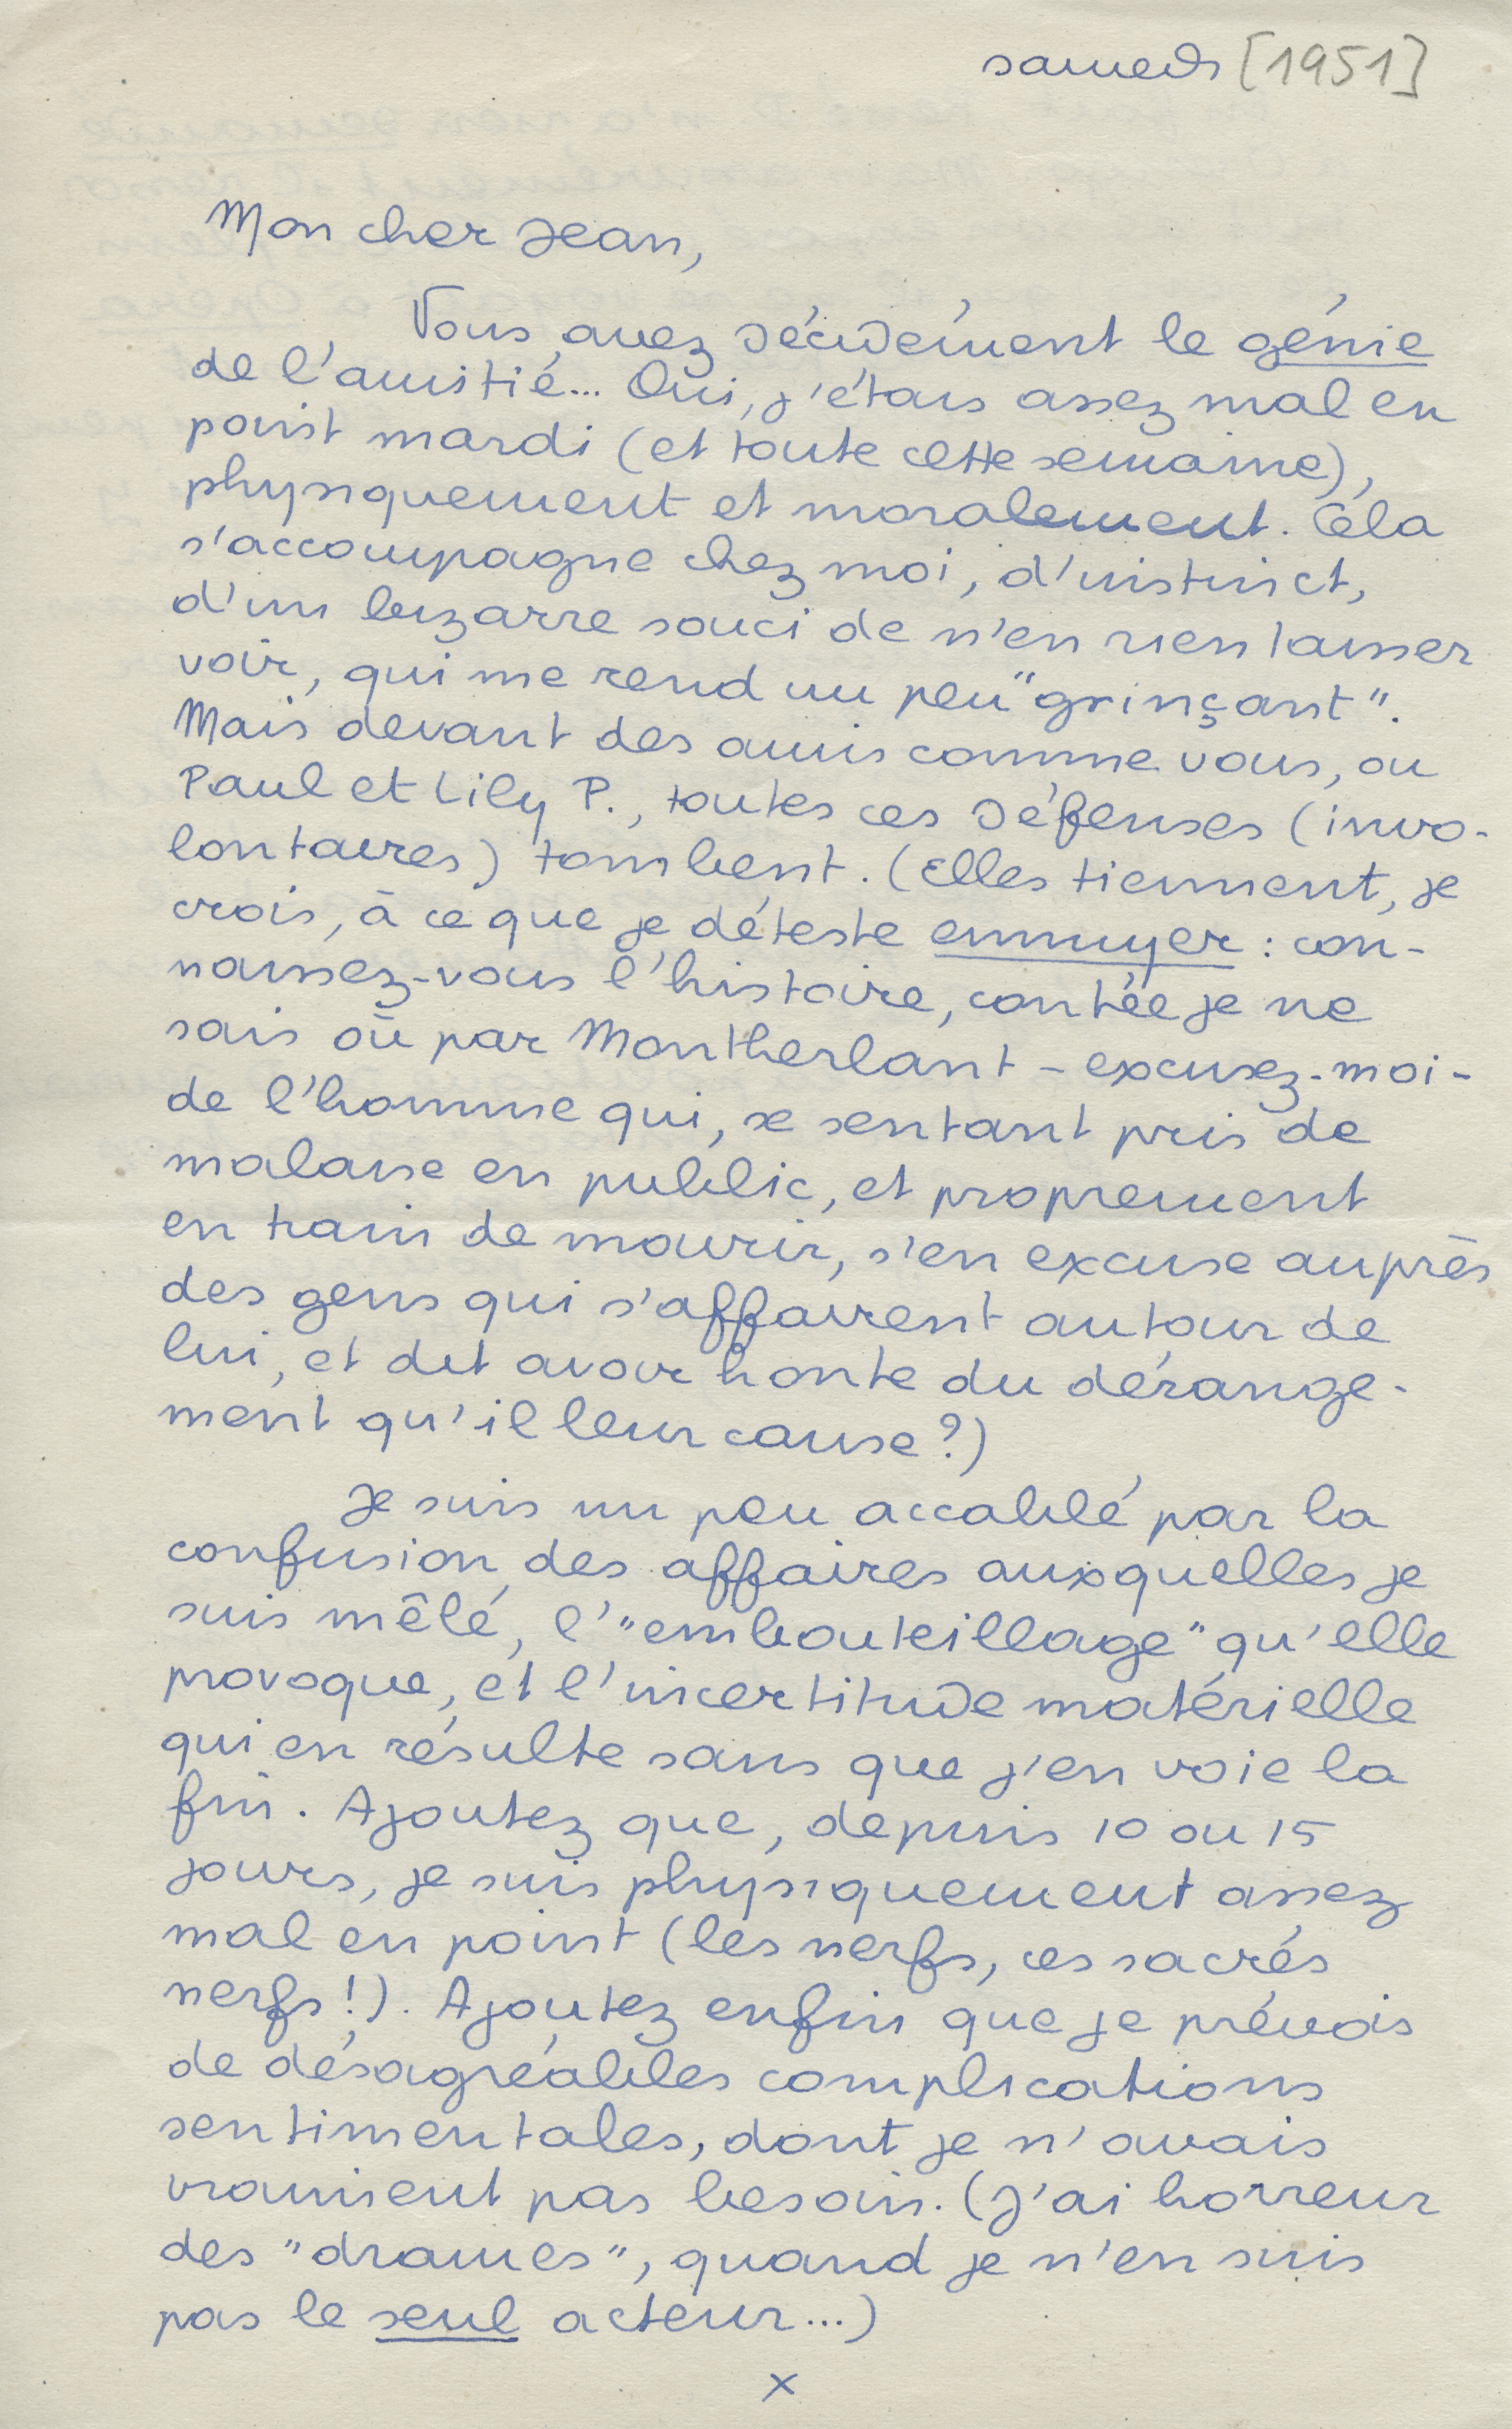 samedi [1951]
Mon cher Jean,
Vous avez décidément le génie
de l'amitié... Oui, j'étais assez mal en
point mardi (et toute cette semaine),
physiquement et moralement. Cela
s'accompagne chez moi, d'instinct,
d'un bizarre souci de n'en rien laisser
voir, qui me rend un peu "grinçant".
Mais devant des amis comme vous, ou
Paul et Lily P., toutes ces défenses (invo-
lontaires) tombent. (Elles tiennent, je
crois, à ce que je déteste ennuyer : con-
naissez-vous l'histoire, contée je ne
sais où par Montherlant - excusez-moi -
de l'homme qui, se sentant pris de
malaise en public, et proprement
en train de mourir, s'en excuse auprès
des gens qui s'affairent autour de
lui, et dit avoir honte du dérange-
ment qu'il leur cause ?)
Je suis un peu accablé par la
confusion des affaires auxquelles je
suis mêlé, l'"embouteillage" qu'elle
provoque, et l'incertitude matérielle
qui en résulte sans que j'en voie la
fin. Ajoutez que, depuis 10 ou 15
jours, je suis physiquement assez
mal en point (les nerfs, ces sacrés
nerfs !). Ajoutez enfin que je prévois
de désagréables complications
sentimentales, dont je n'avais
vraiment pas besoin. (J'ai horreur
des "drames", quand je n'en suis
pas le seul acteur...)
x